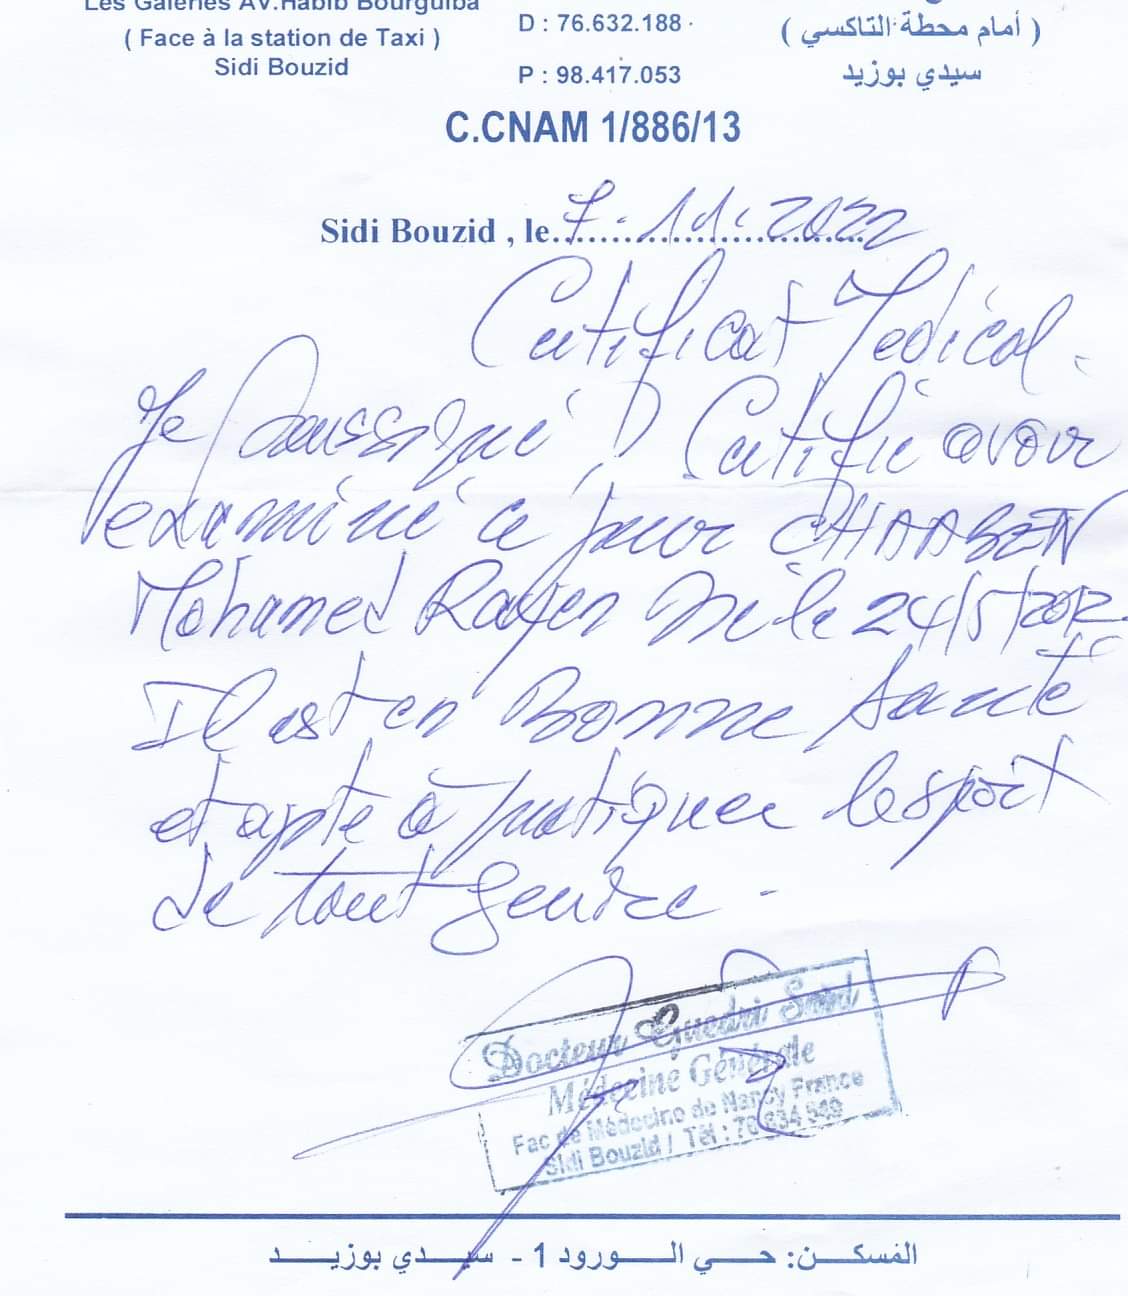 Les Galeries AV.Habib Bourguiba
( Face à la station de Taxi )
Sidi Bouzid
D : 76.632.188
P : 98.417.053
( أمام محطة التاكسي )
سيدي بوزيد
C.CNAM 1/886/13
Sidi Bouzid , le 7.11.2022
Certificat Medical.
Je soussigné Certifie avoir
examiné ce jour CHAABEN
Mohamed Rayen Né le 24/5/2012
Il est en Bonne Santé
et apte à pratiquer le sport
de tout genre.
Docteur Guedri Said
Médecine Générale
Fac de Médecine de Nancy France
Sidi Bouzid / Tél : 76 634 549
المسكن: حي الورود 1 - سيدي بوزيد